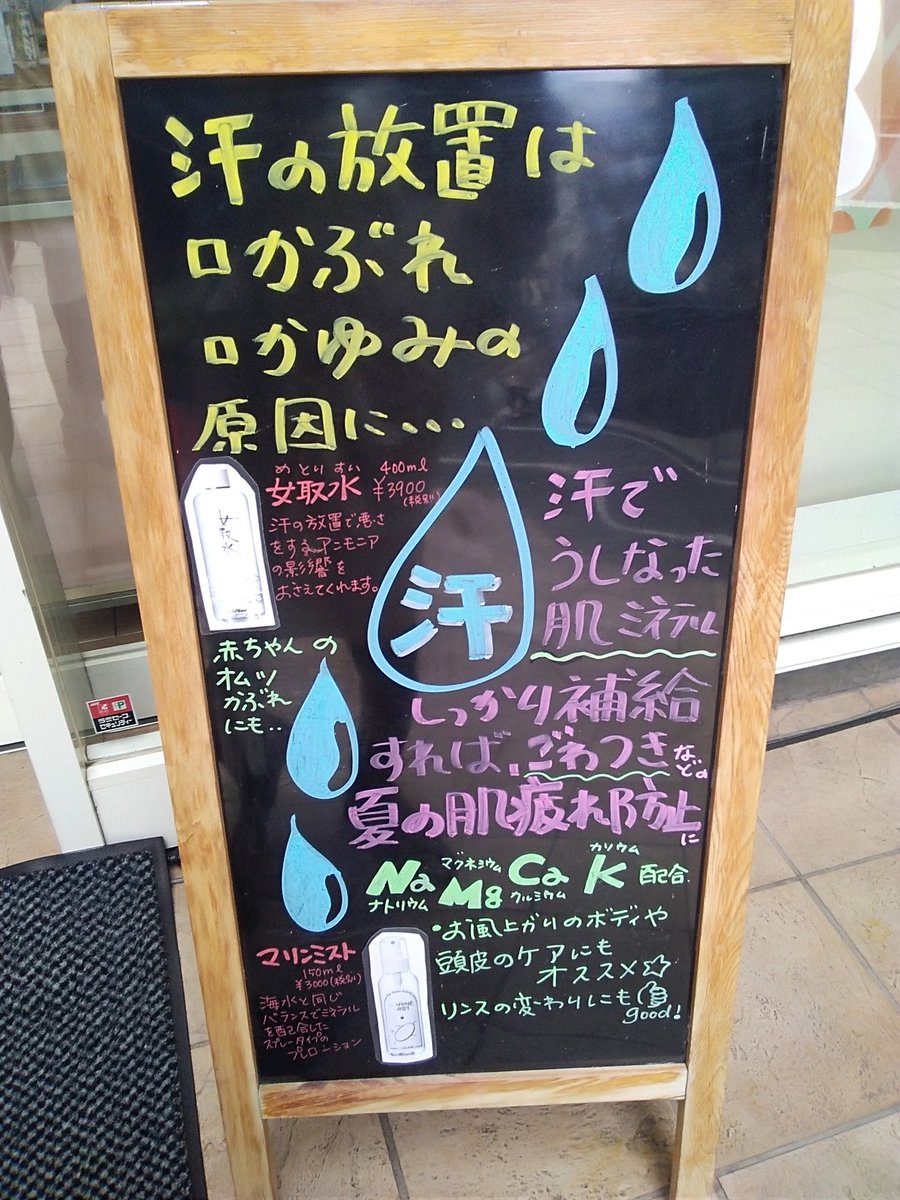 汗の放置は
□かぶれ
□かゆみの
原因に・・・
めとりすい
女取水 400ml
¥3900
(税別)
汗の放置で悪さ
をするアンモニア
の影響を
おさえてくれます。
女取水
赤ちゃんの
オムツ
かぶれ
にも..
汗
汗で
うしなった
肌ミネラル
しっかり補給
すれば、ごわつきなどの
夏の肌疲れ防止に
Na Mg Ca K 配合.
ナトリウム マグネシウム クルミウム カリウム
・お風呂上がりのボディや
頭皮のケアにも
オススメ☆
リンスの変わりにも
good!
マリンミスト
150ml
¥3000(税別)
海水と同じ
バランスでミネラル
を配合した
スプレータイプの
プレローション
MARINE
MIST
セキュリティー